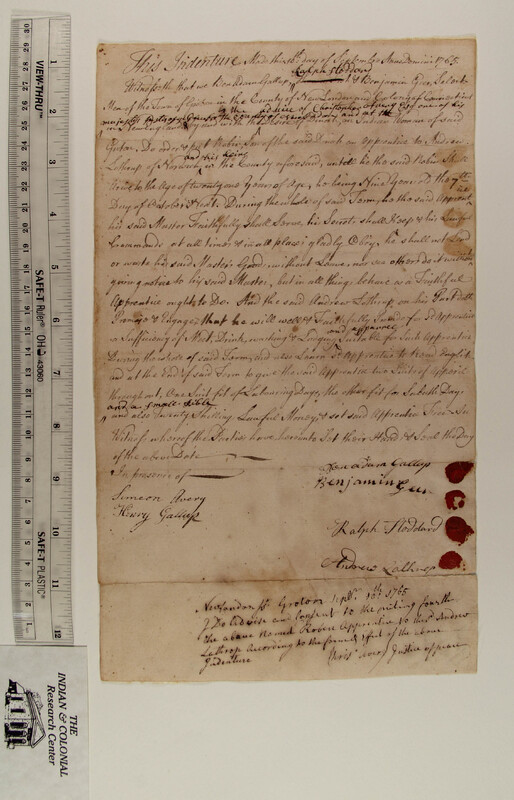 This Indenture Made this 18th day of September Annodomini 1765
Ralph Stoddard
Witnesseth that we Benadam Gallup, & Benjamin Geer, Select
Men of the Town of Groton in the County of New London and Colony of Connecticut
by the advice of Christopher Avery Esqr one of his
majestys Justices of the Peace for the County of
and with the of an Indian Woman of said
Groton, Do and put Robin Son of the said Dinah an apprentice to Andrew
Lathrop of Norwich in the County aforesaid, untill he the said Robin Shall
and his heirs
arive to the Age of twenty one Years of Age, he being Nine Years old the 7th
Day of October Next: During the whole of said Term, he the said Apprentice
his said Master Faithfully Shall Serve, his Secrets shall Keep & his Lawful
Commands at all times & in all places gladly Obey, he shall not lend
or waste his said Master's Goods without Leave, nor see others do it without
giving notice to his said Master, but in all things behave as a Faithful
Apprentice ought to Do. And the said Andrew Lathrop on his Part Doth
Promise & Engage that he will well & Faithfully Provide for sd Apprentice
and apparrel
a Sufficiency of Meat, Drink, washing & Lodging Suitable for Such Apprentice
During the whole of said Term, and also Learn sd Apprentice to read English
and at the End of said Term to give the said Apprentice two Suits of Apparel
throughout, One Suit fit for Labouring Days, the other fit for Sabbath Days
and a small bible
and also twenty Shillings Lawful Money, & set said Apprentice Free In
Witness whereof the Parties have hereunto Set their Hand & Seal the Day
of the above Date
In presence of
Simeon Avery
Henry Gallup
Benadam Gallup
Benjamin Geer
Ralph Stoddard
Andrew Lathrop
New London Ss Groton Septr 18th 1765
I Do advise and Consent to the puting forth
the above Named Robin Apprentice to the sd Andrew
Lathrop According to the form & Efect of the above
Indenture Chrisr Avery Justice of peace
VIEW-THRU™
SAFE-T Ruler® OH 43090
SAFE-T PLASTIC®
30 29 28 27 26 25 24 23 22 21 20 19 18 17 16 15 14 13 12 11 10 9 8 7 6 5 4 3 2 1
1 2 3 4 5 6 7 8 9 10 11 12
THE
INDIAN & COLONIAL
Research Center